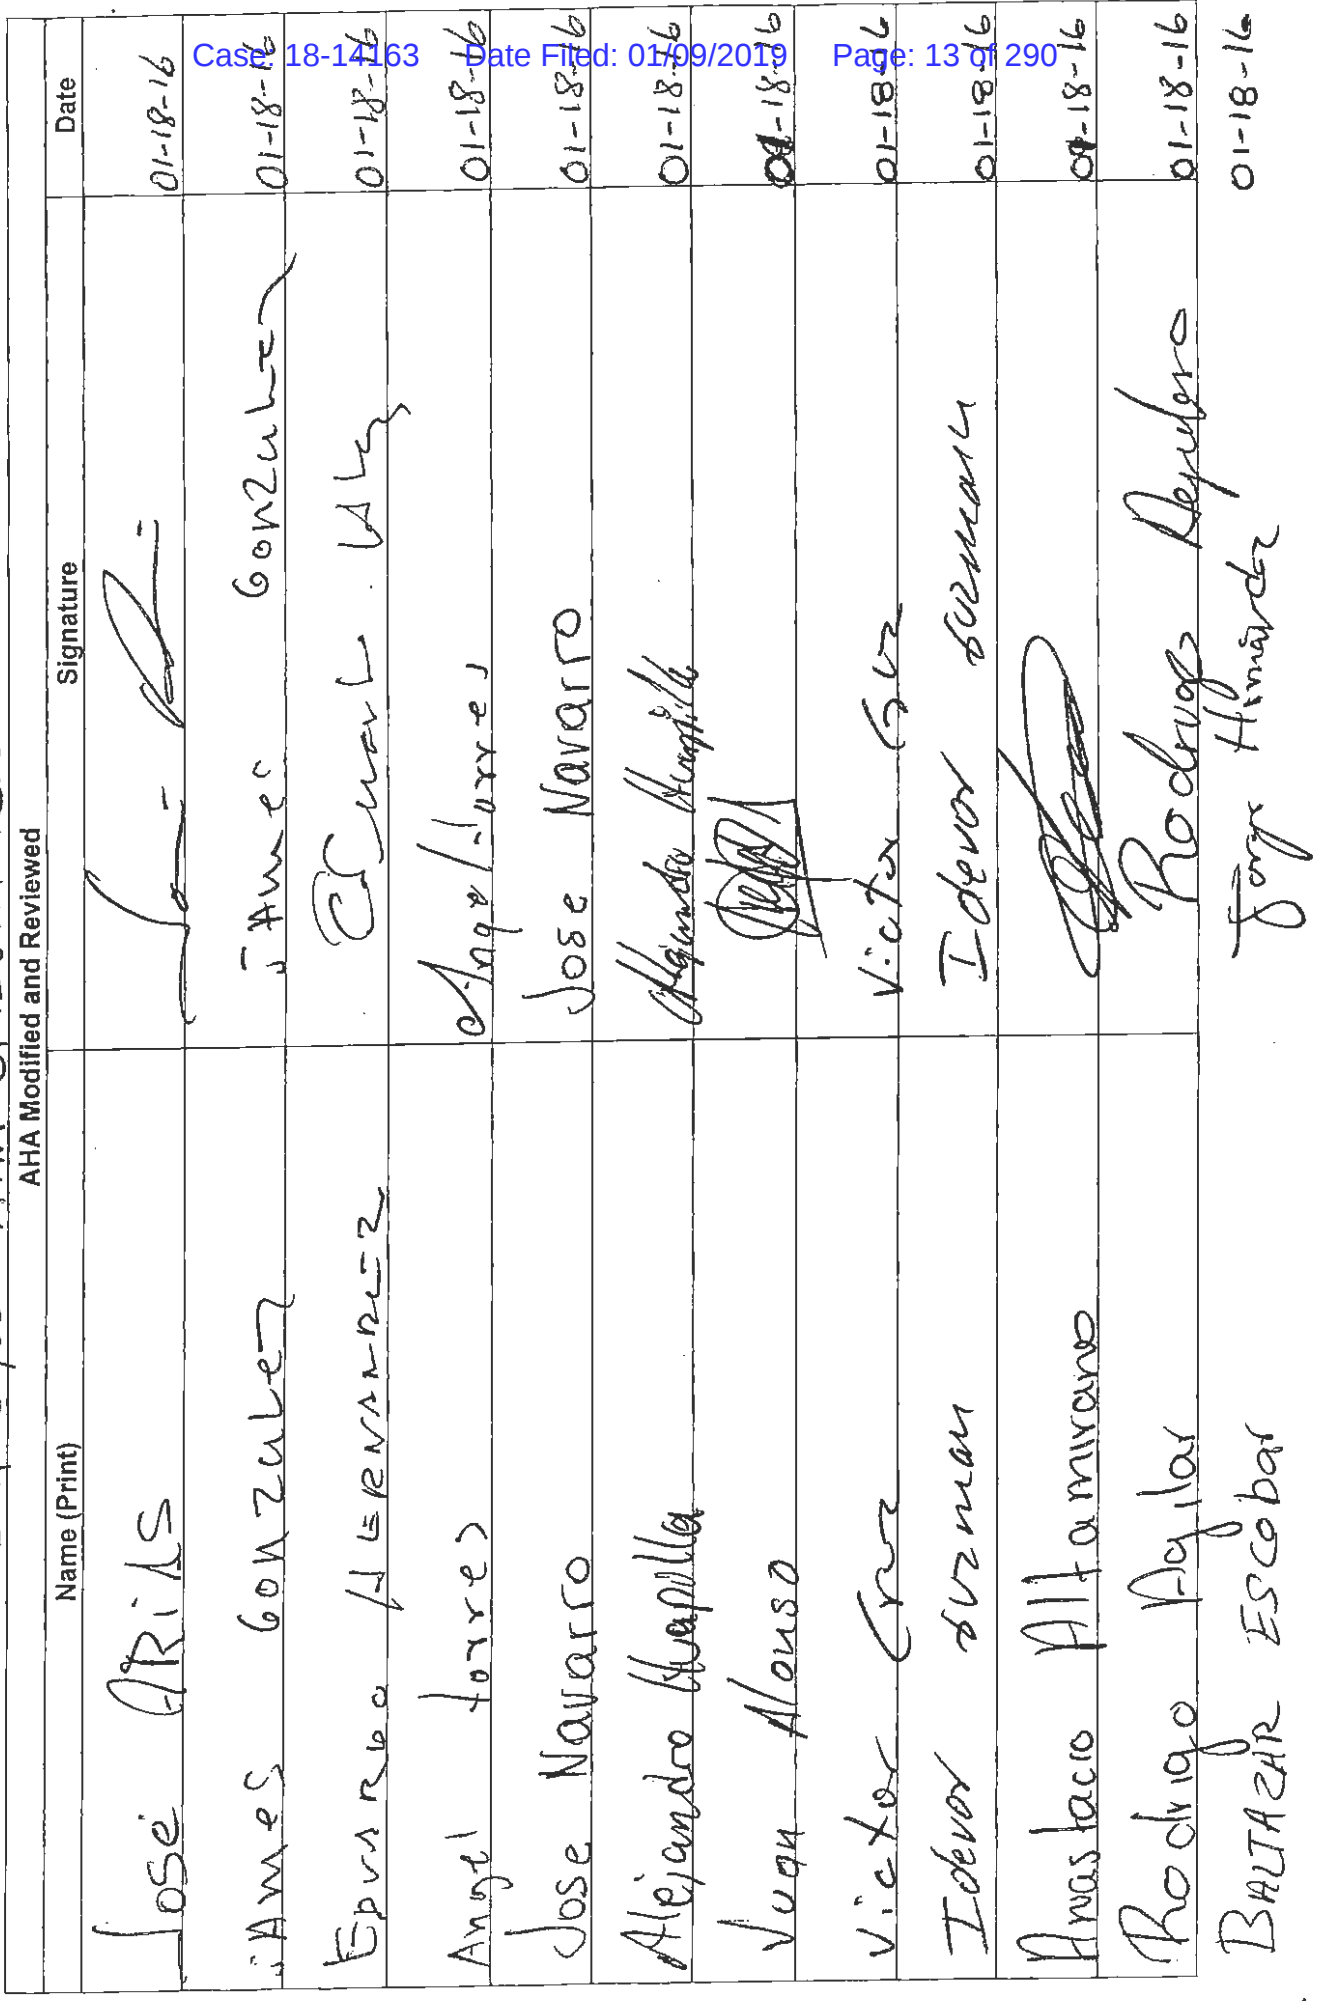 Case: 18-14163 Date Filed: 01/09/2019 Page: 13 of 290
AHA Modified and Reviewed
Name (Print) Signature Date
Jose ARiAS 01-18-16
jAmes Gonzalez jAmes Gonzalez 01-18-16
HERNANDEZ 01-18-16
Angel torres Angel torres 01-18-16
Jose Navarro Jose Navarro 01-18-16
Alejandro 01-18-16
Juan Alonso 01-18-16
Victor Cruz Victor Cruz 01-18-16
Idevor Guzman Idevor Guzman 01-18-16
Anastacio Altamirano 01-18-16
Rodrigo Agilar Rodrigo 01-18-16
BALTAZAR ESCobar 01-18-16